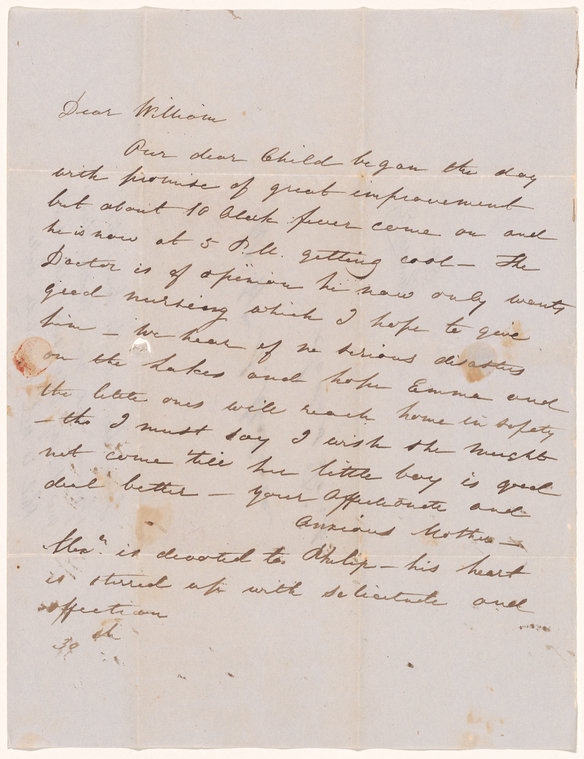 Dear William
Our dear Child began the day
with promise of great improvement
but about 10 Oclock fever came on and
he is now at 5 P.M. getting cool — The
Doctor is of opinion he now only wants
good nursing which I hope to give
him — we hear of no serious disasters
on the Lakes and hope Emma and
the little ones will reach home in safety
— tho I must say I wish she might
not come 'till her little boy is good
deal better — your Affectionate and
Anxious Mother —
Alexr. is devoted to Philip — his heart
is stirred up with solicitude and
affection
30th